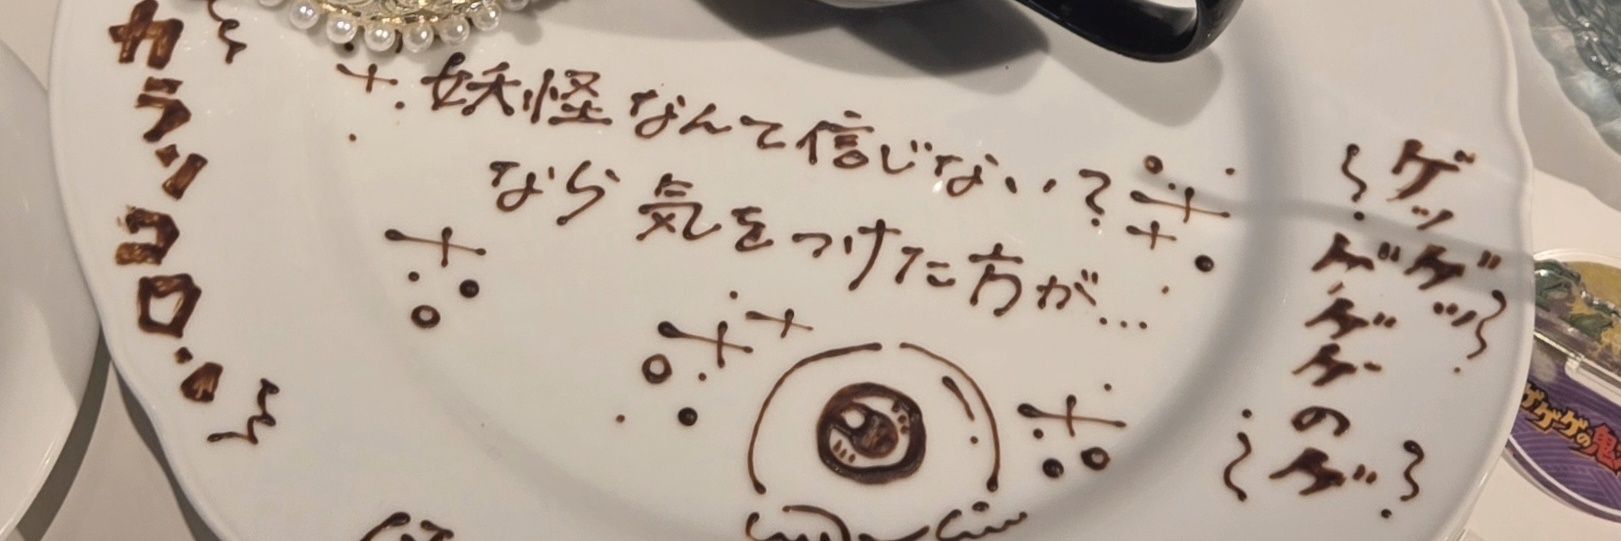 カランコロン
妖怪なんて信じない?
なら気をつけた方が...
ゲッゲッ
ゲゲゲのゲ
ゲゲゲの鬼